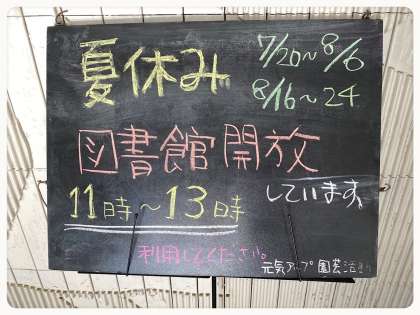 夏休み 7/20～8/6
8/16～24
図書館開放
しています。
11時～13時
利用してください。
元気アップ 園芸